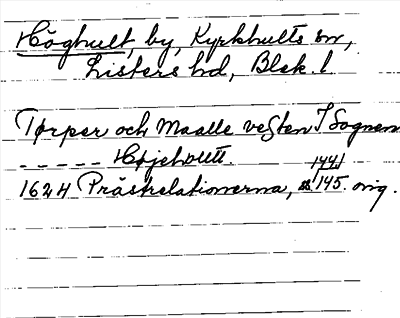 Höghult, by, Kyrkhults sn,
Listers hd, Blek. l
Tørper och Maalle vesten I Sognen
- - - - - Højehollt.
1624 Prästrelationerna, s 145. orig.